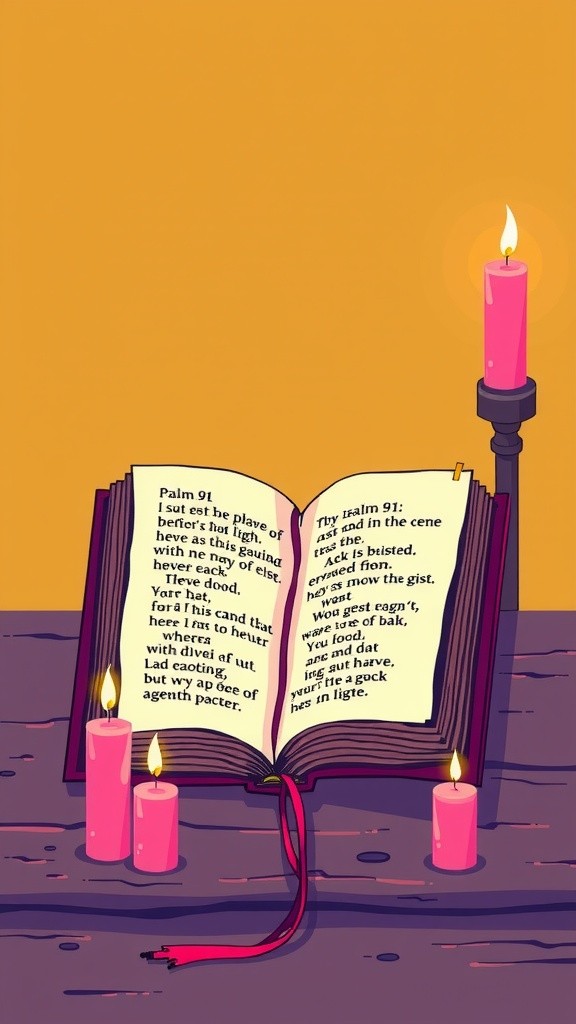 Palm 91
I sut est be plave of
befier's hat ligh.
heve as this gauind
with ne ney of eist.
hever eack.
Tleve dood,
Yarr hat,
for a f his cand that
here I fas to heuer
whters
with divel af ut.
Lad eaoting,
but wy ap öce of
agenth pacter.
Thy isalm 91:
ast and in the cene
the.
Ack is bristed.
fron.
mow the gist.
Want
Wou gest eagn't,
of bak,
You food,
anc and dat
aut harve,
a gock
in ligte.